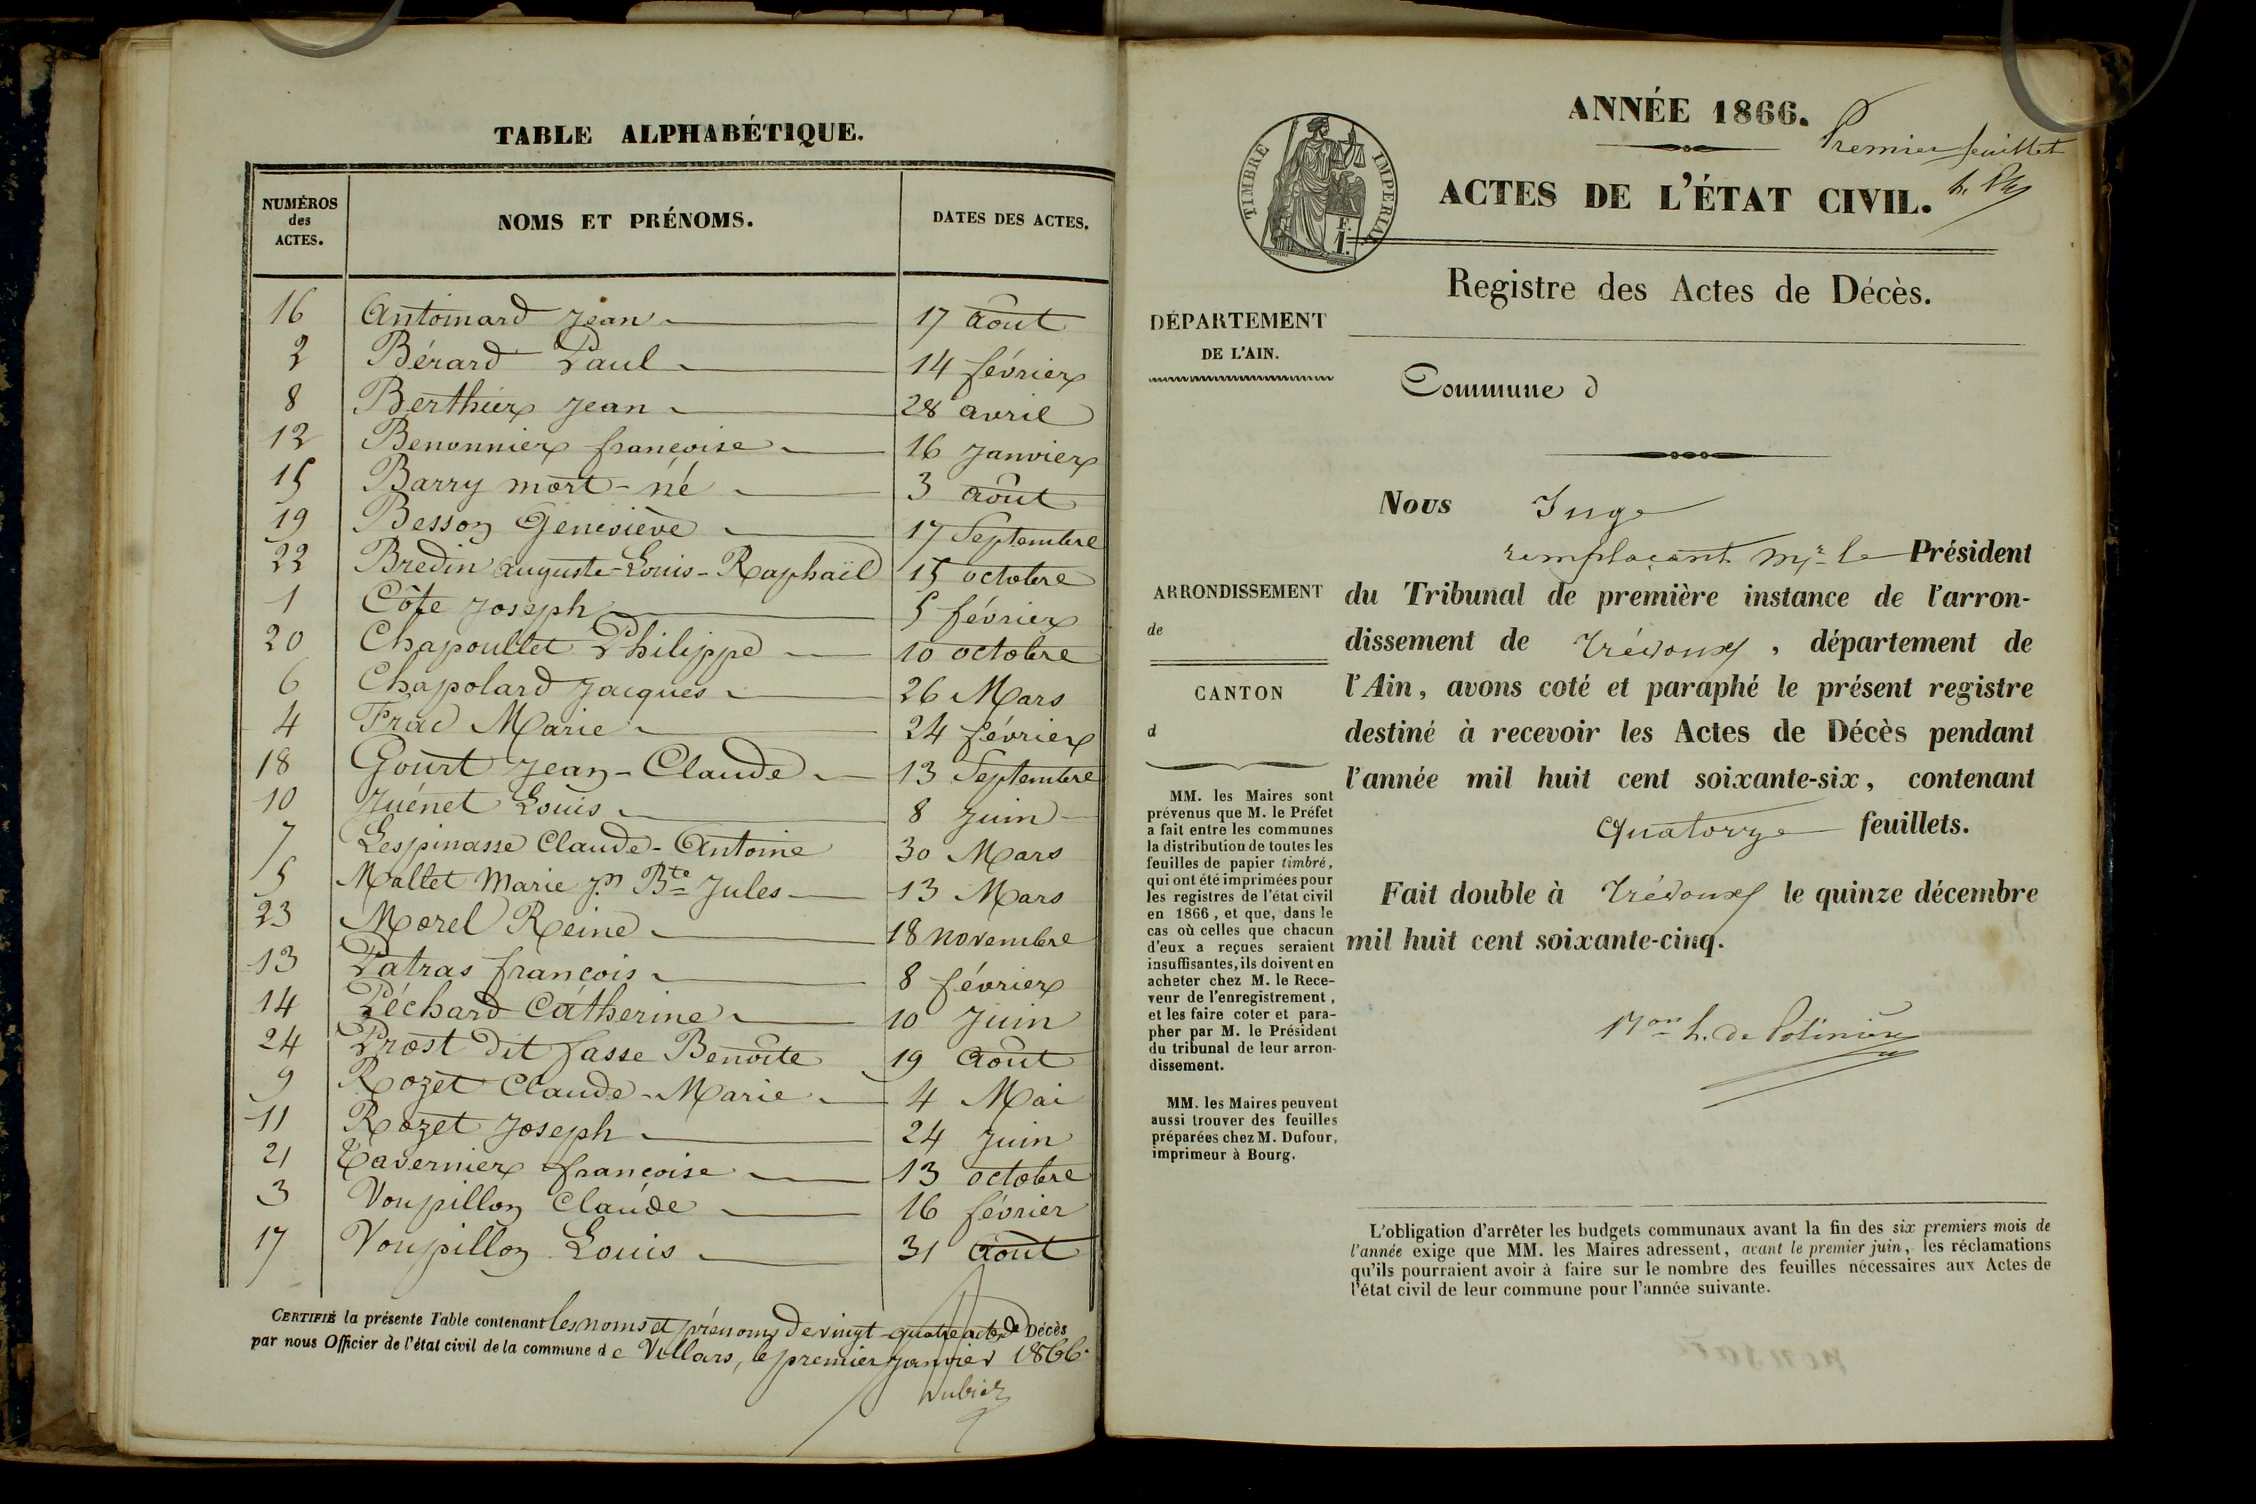 TABLE ALPHABÉTIQUE.
NUMÉROS
des
ACTES.
NOMS ET PRÉNOMS.
DATES DES ACTES.
16 Antoinard Jean 17 août
2 Bérard Paul 14 février
8 Berthier Jean 28 avril
12 Benonnier françoise 16 Janvier
15 Barry mort-né 3 août
19 Besson Geneviève 17 Septembre
22 Bredin auguste-Louis-Raphaël 15 octobre
1 Côte Joseph 5 février
20 Chapoultet Philippe 10 octobre
6 Chapolard Jacques 26 Mars
4 Frac Marie 24 février
18 Gourt Jean-Claude 13 Septembre
10 Juénet Louis 8 Juin
7 Lespinasse Claude-Antoine 30 Mars
5 Mallet Marie Jn Bte Jules 13 Mars
23 Morel Reine 18 novembre
13 Patras françois 8 février
14 Péchard Catherine 10 Juin
24 Prost dit fasse Benoîte 19 août
9 Rozet Claude-Marie 4 Mai
11 Rozet Joseph 24 Juin
21 Tavernier françoise 13 octobre
3 Voupillon Claude 16 février
17 Voupillon Louis 31 août
CERTIFIÉ la présente Table contenant les noms et prénoms de vingt-quatre actes de Décès
par nous Officier de l'état civil de la commune de Villars, le premier janvier 1866.
ANNÉE 1866.
Premier feuillet
TIMBRE IMPERIAL
F.
1.
ACTES DE L'ÉTAT CIVIL.
Registre des Actes de Décès.
DÉPARTEMENT
DE L'AIN.
Commune d
ARRONDISSEMENT
de
CANTON
d
MM. les Maires sont
prévenus que M. le Préfet
a fait entre les communes
la distribution de toutes les
feuilles de papier timbré,
qui ont été imprimées pour
les registres de l'état civil
en 1866, et que, dans le
cas où celles que chacun
d'eux a reçues seraient
insuffisantes, ils doivent en
acheter chez M. le Rece-
veur de l'enregistrement,
et les faire coter et para-
pher par M. le Président
du tribunal de leur arron-
dissement.
MM. les Maires peuvent
aussi trouver des feuilles
préparées chez M. Dufour,
imprimeur à Bourg.
Nous Juge
remplaçant Mr le Président
du Tribunal de première instance de l'arron-
dissement de Trévoux, département de
l'Ain, avons coté et paraphé le présent registre
destiné à recevoir les Actes de Décès pendant
l'année mil huit cent soixante-six, contenant
Quatorze feuillets.
Fait double à Trévoux le quinze décembre
mil huit cent soixante-cinq.
L'obligation d'arrêter les budgets communaux avant la fin des six premiers mois de
l'année exige que MM. les Maires adressent, avant le premier juin, les réclamations
qu'ils pourraient avoir à faire sur le nombre des feuilles nécessaires aux Actes de
l'état civil de leur commune pour l'année suivante.